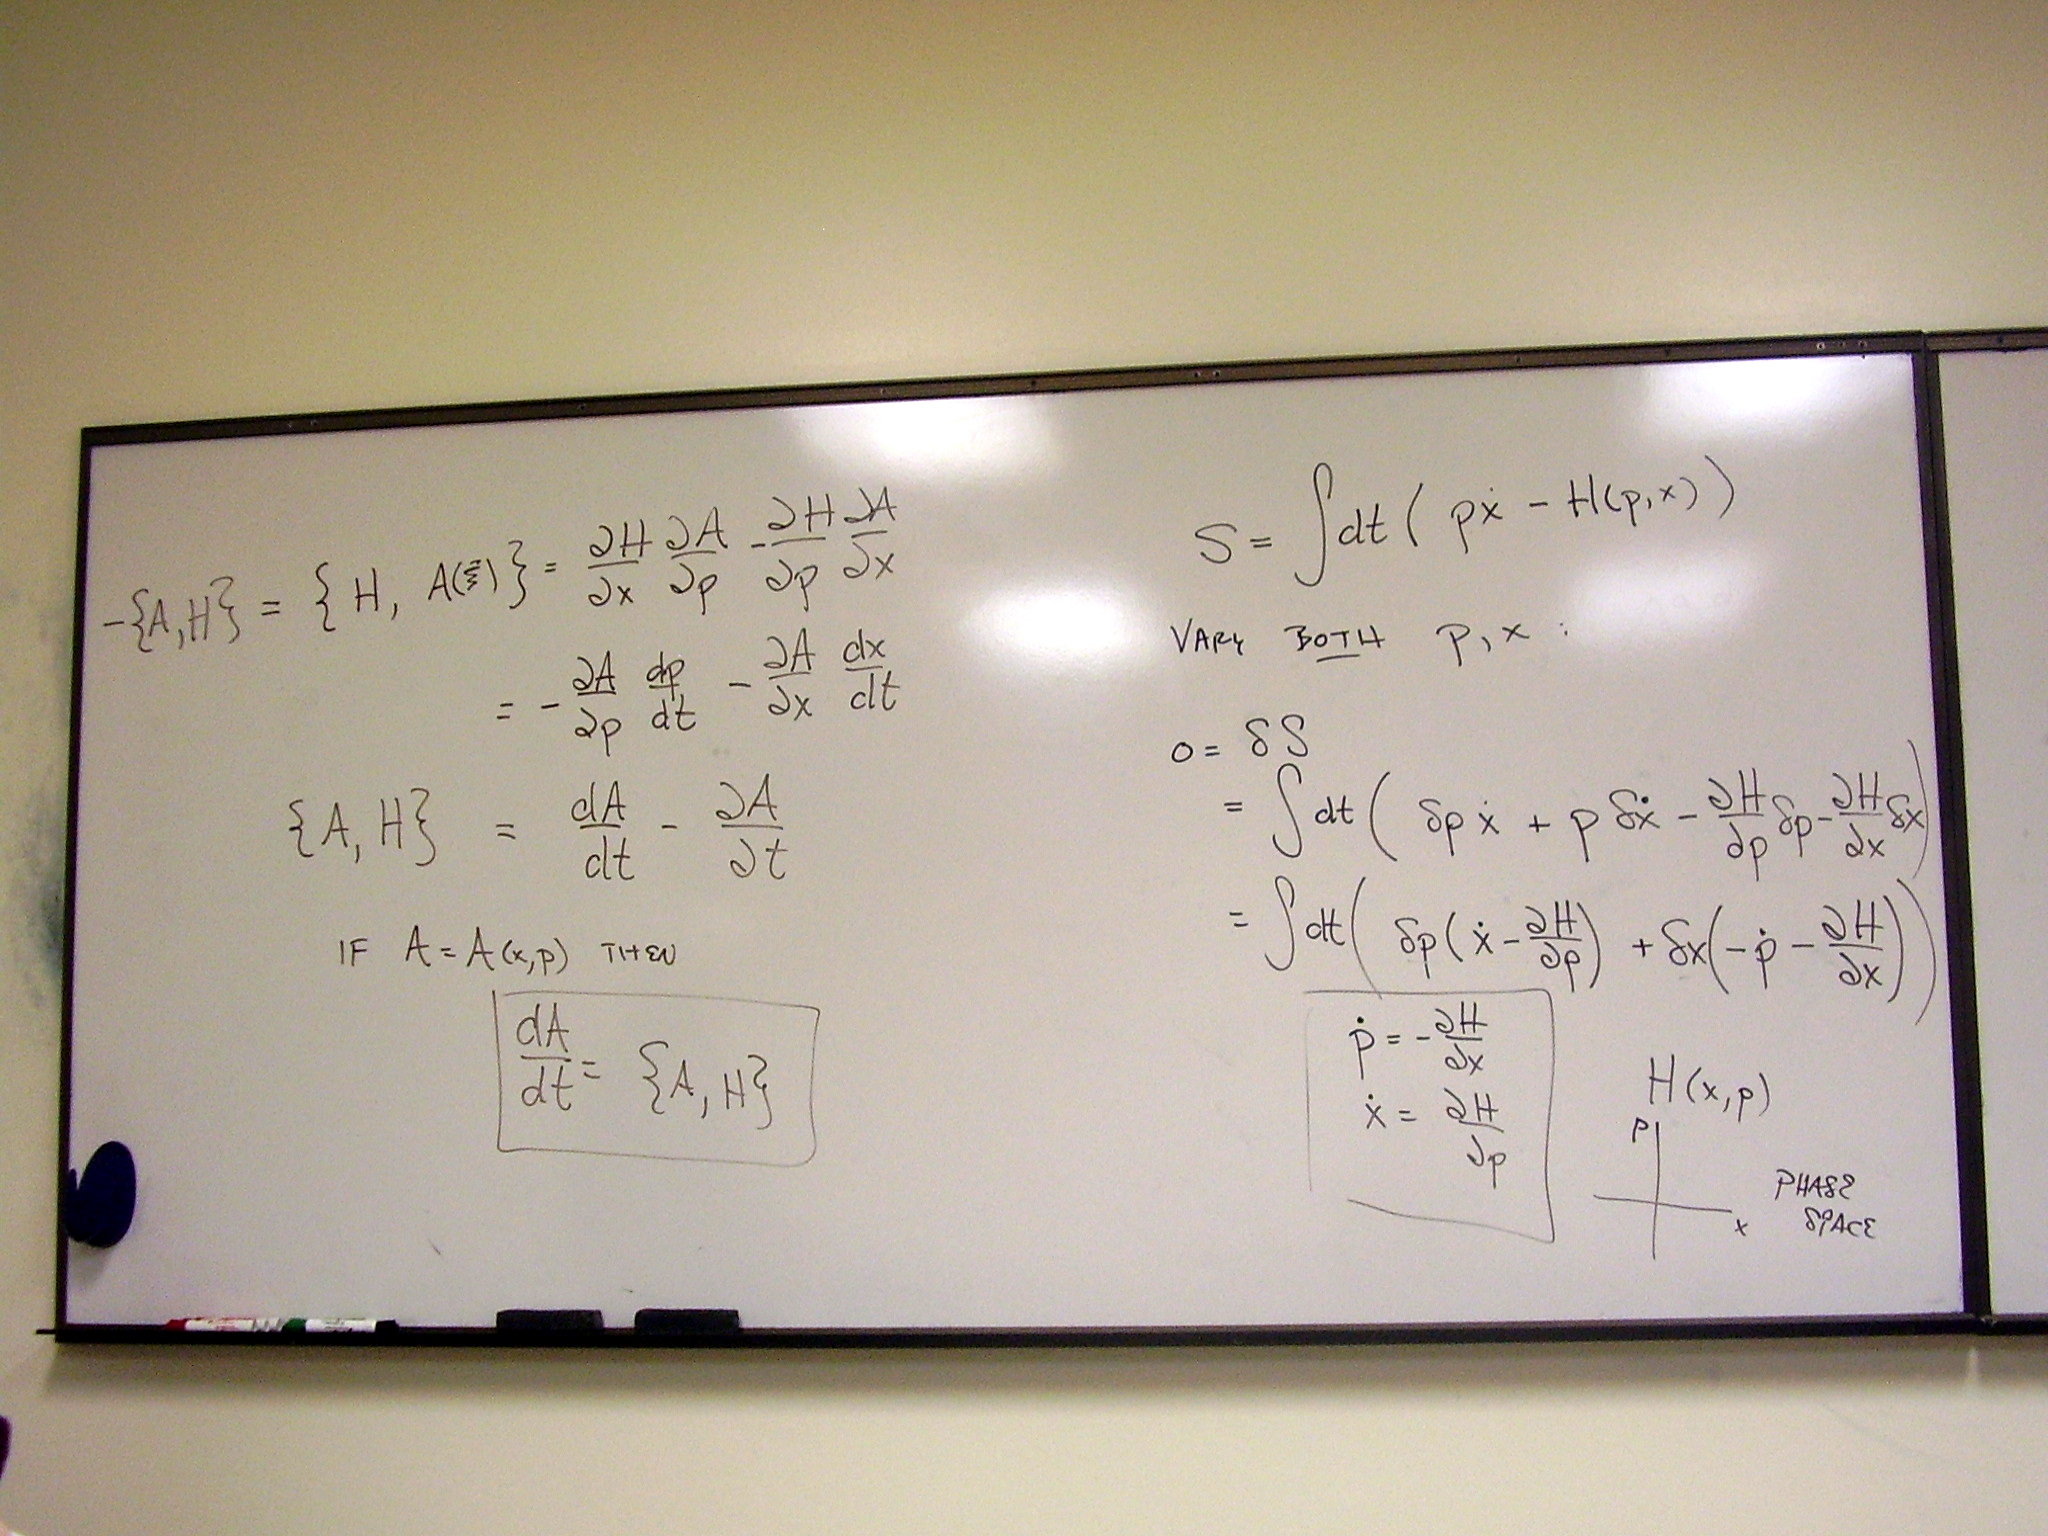 -{A,H} = {H, A(ξ)} = ∂H/∂x ∂A/∂p - ∂H/∂p ∂A/∂x
= - ∂A/∂p dp/dt - ∂A/∂x dx/dt
{A, H} = dA/dt - ∂A/∂t
IF A = A(x,p) THEN
dA/dt = {A, H}
S = ∫dt ( pẋ - H(p,x) )
VARY BOTH p, x :
0 = δS
= ∫dt ( δp ẋ + p δẋ - ∂H/∂p δp - ∂H/∂x δx )
= ∫dt ( δp(ẋ - ∂H/∂p) + δx(-ṗ - ∂H/∂x) )
ṗ = -∂H/∂x
ẋ = ∂H/∂p
H(x,p)
P
x
PHASE
SPACE